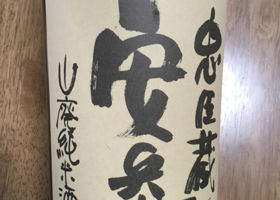 忠臣蔵
安兵
山廃純米酒